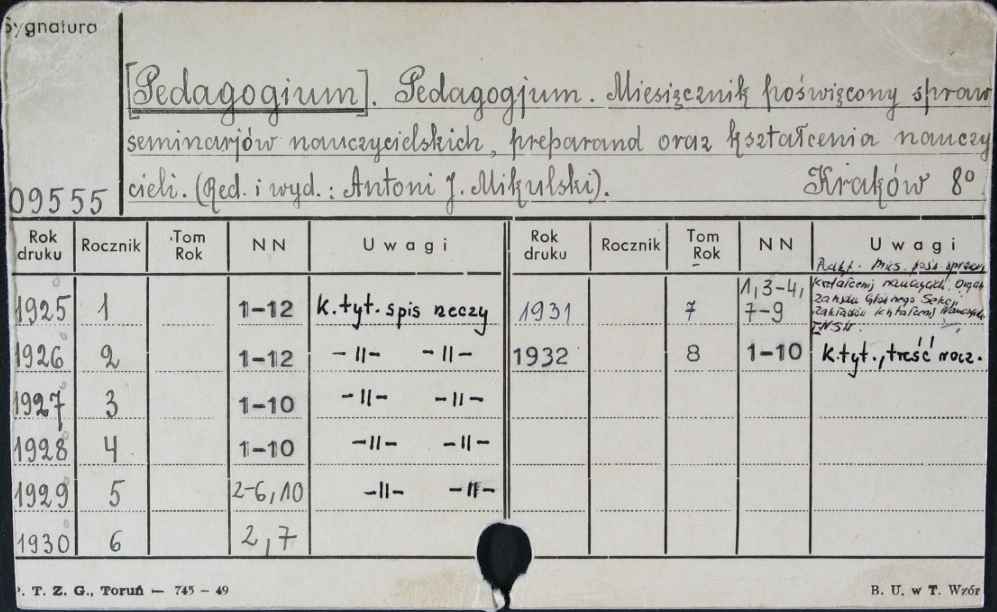 Sygnatura
[Pedagogium]. Pedagogjum. Miesięcznik poświęcony spraw
seminarjów nauczycielskich, preparand oraz kształcenia nauczy
cieli. (Red. i wyd.: Antoni J. Mikulski). Kraków 8°
09555
Rok druku Rocznik Tom Rok NN Uwagi Rok druku Rocznik Tom Rok NN Uwagi
1925 1 1-12 k.tyt. spis rzeczy 1931 7 1,3-4, 7-9
kształcenij nauczyciels. Organ
Zarządu Głównego Sekcji
T.N.S.W.
1926 2 1-12 -||- -||- 1932 8 1-10 k.tyt., treść rocz.
1927 3 1-10 -||- -||-
1928 4 1-10 -||- -||-
1929 5 2-6,10 -||- -||-
1930 6 2,7
P. T. Z. G., Toruń — 745 - 49 B. U. w T. Wzór